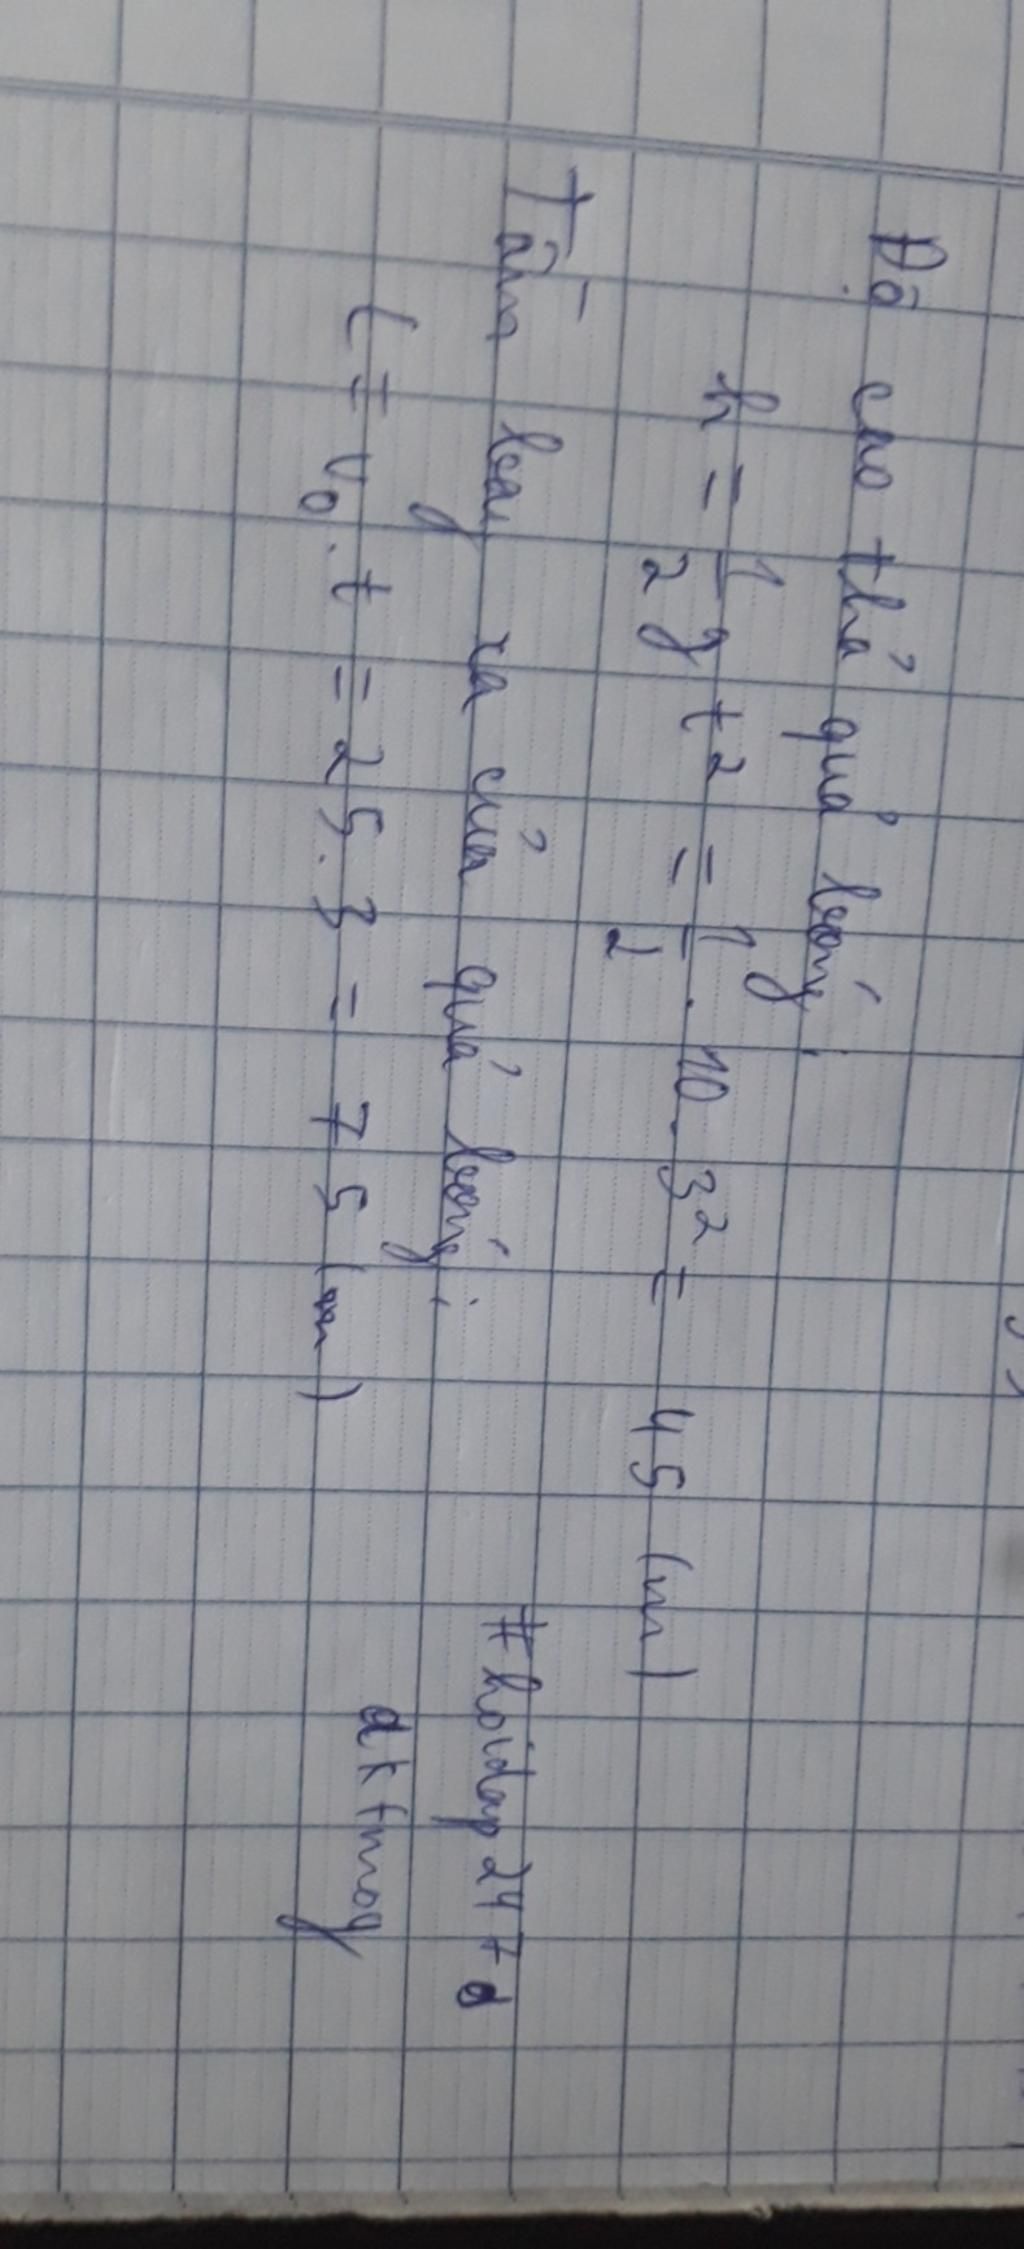 Độ cao thả quả bóng:
h = 1/2 g t² = 1/2 . 10 . 3² = 45 (m)
Tầm bay xa của quả bóng:
L = v₀ . t = 25 . 3 = 75 (m)
#hoidap247